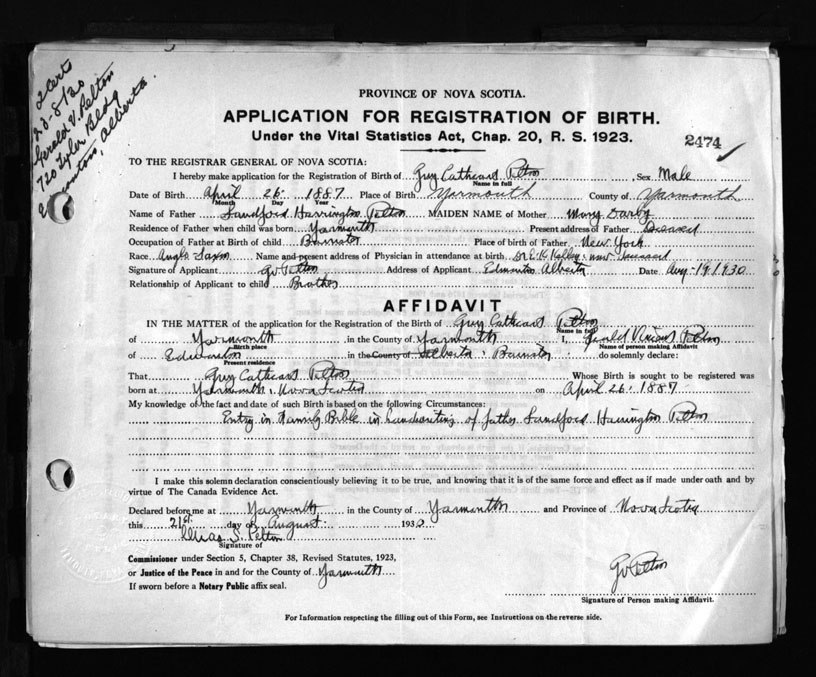 2 Certs
23-8/30
Gerald V. Pelton
720 Tyler Bldg
Edmonton, Alberta.
PROVINCE OF NOVA SCOTIA.
APPLICATION FOR REGISTRATION OF BIRTH.
Under the Vital Statistics Act, Chap. 20, R. S. 1923.
2474
TO THE REGISTRAR GENERAL OF NOVA SCOTIA:
I hereby make application for the Registration of Birth of Guy Cathcart Pelton Sex Male
Name in full
Date of Birth April 26 1887 Place of Birth Yarmouth County of Yarmouth
Month Day Year
Name of Father Sandford Harrington Pelton MAIDEN NAME of Mother Mary Darby
Residence of Father when child was born Yarmouth Present address of Father Deceased
Occupation of Father at Birth of child Barrister Place of birth of Father New York
Race Anglo Saxon Name and present address of Physician in attendance at birth Dr. Kelley now deceased
Signature of Applicant GV Pelton Address of Applicant Edmonton Alberta Date Aug 19 1930
Relationship of Applicant to child Brother
AFFIDAVIT
IN THE MATTER of the application for the Registration of the Birth of Guy Cathcart Pelton
Name in full
of Yarmouth in the County of Yarmouth I, Gerald Vincent Pelton
Birth place Name of person making Affidavit
of Edmonton in the County of Alberta, Barrister do solemnly declare:
Present residence
That Guy Cathcart Pelton Whose Birth is sought to be registered was
born at Yarmouth, Nova Scotia on April 26, 1887
My knowledge of the fact and date of such Birth is based on the following Circumstances:
Entry in Family Bible in handwriting of father Sandford Harrington Pelton
I make this solemn declaration conscientiously believing it to be true, and knowing that it is of the same force and effect as if made under oath and by
virtue of The Canada Evidence Act.
Declared before me at Yarmouth in the County of Yarmouth and Province of Nova Scotia
this 21st day of August 1930
Chas S. Pelton
Signature of
Commissioner under Section 5, Chapter 38, Revised Statutes, 1923,
or Justice of the Peace in and for the County of Yarmouth
If sworn before a Notary Public affix seal.
GV Pelton
Signature of Person making Affidavit.
For Information respecting the filling out of this Form, see Instructions on the reverse side.